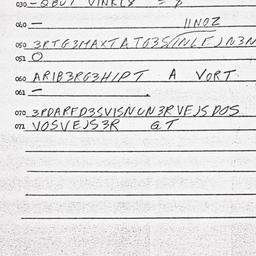 030 – OBUT VINKLX = P
040 – 11NOZ
050 3RTG3MAXTATG3S/INLF)N3N
051 O
060 ARIB3RG3HIPT A VORT
061 –
070 3PDARFD3SVISNUN3RVEJSDOS
071 VOSVEJS3R GT